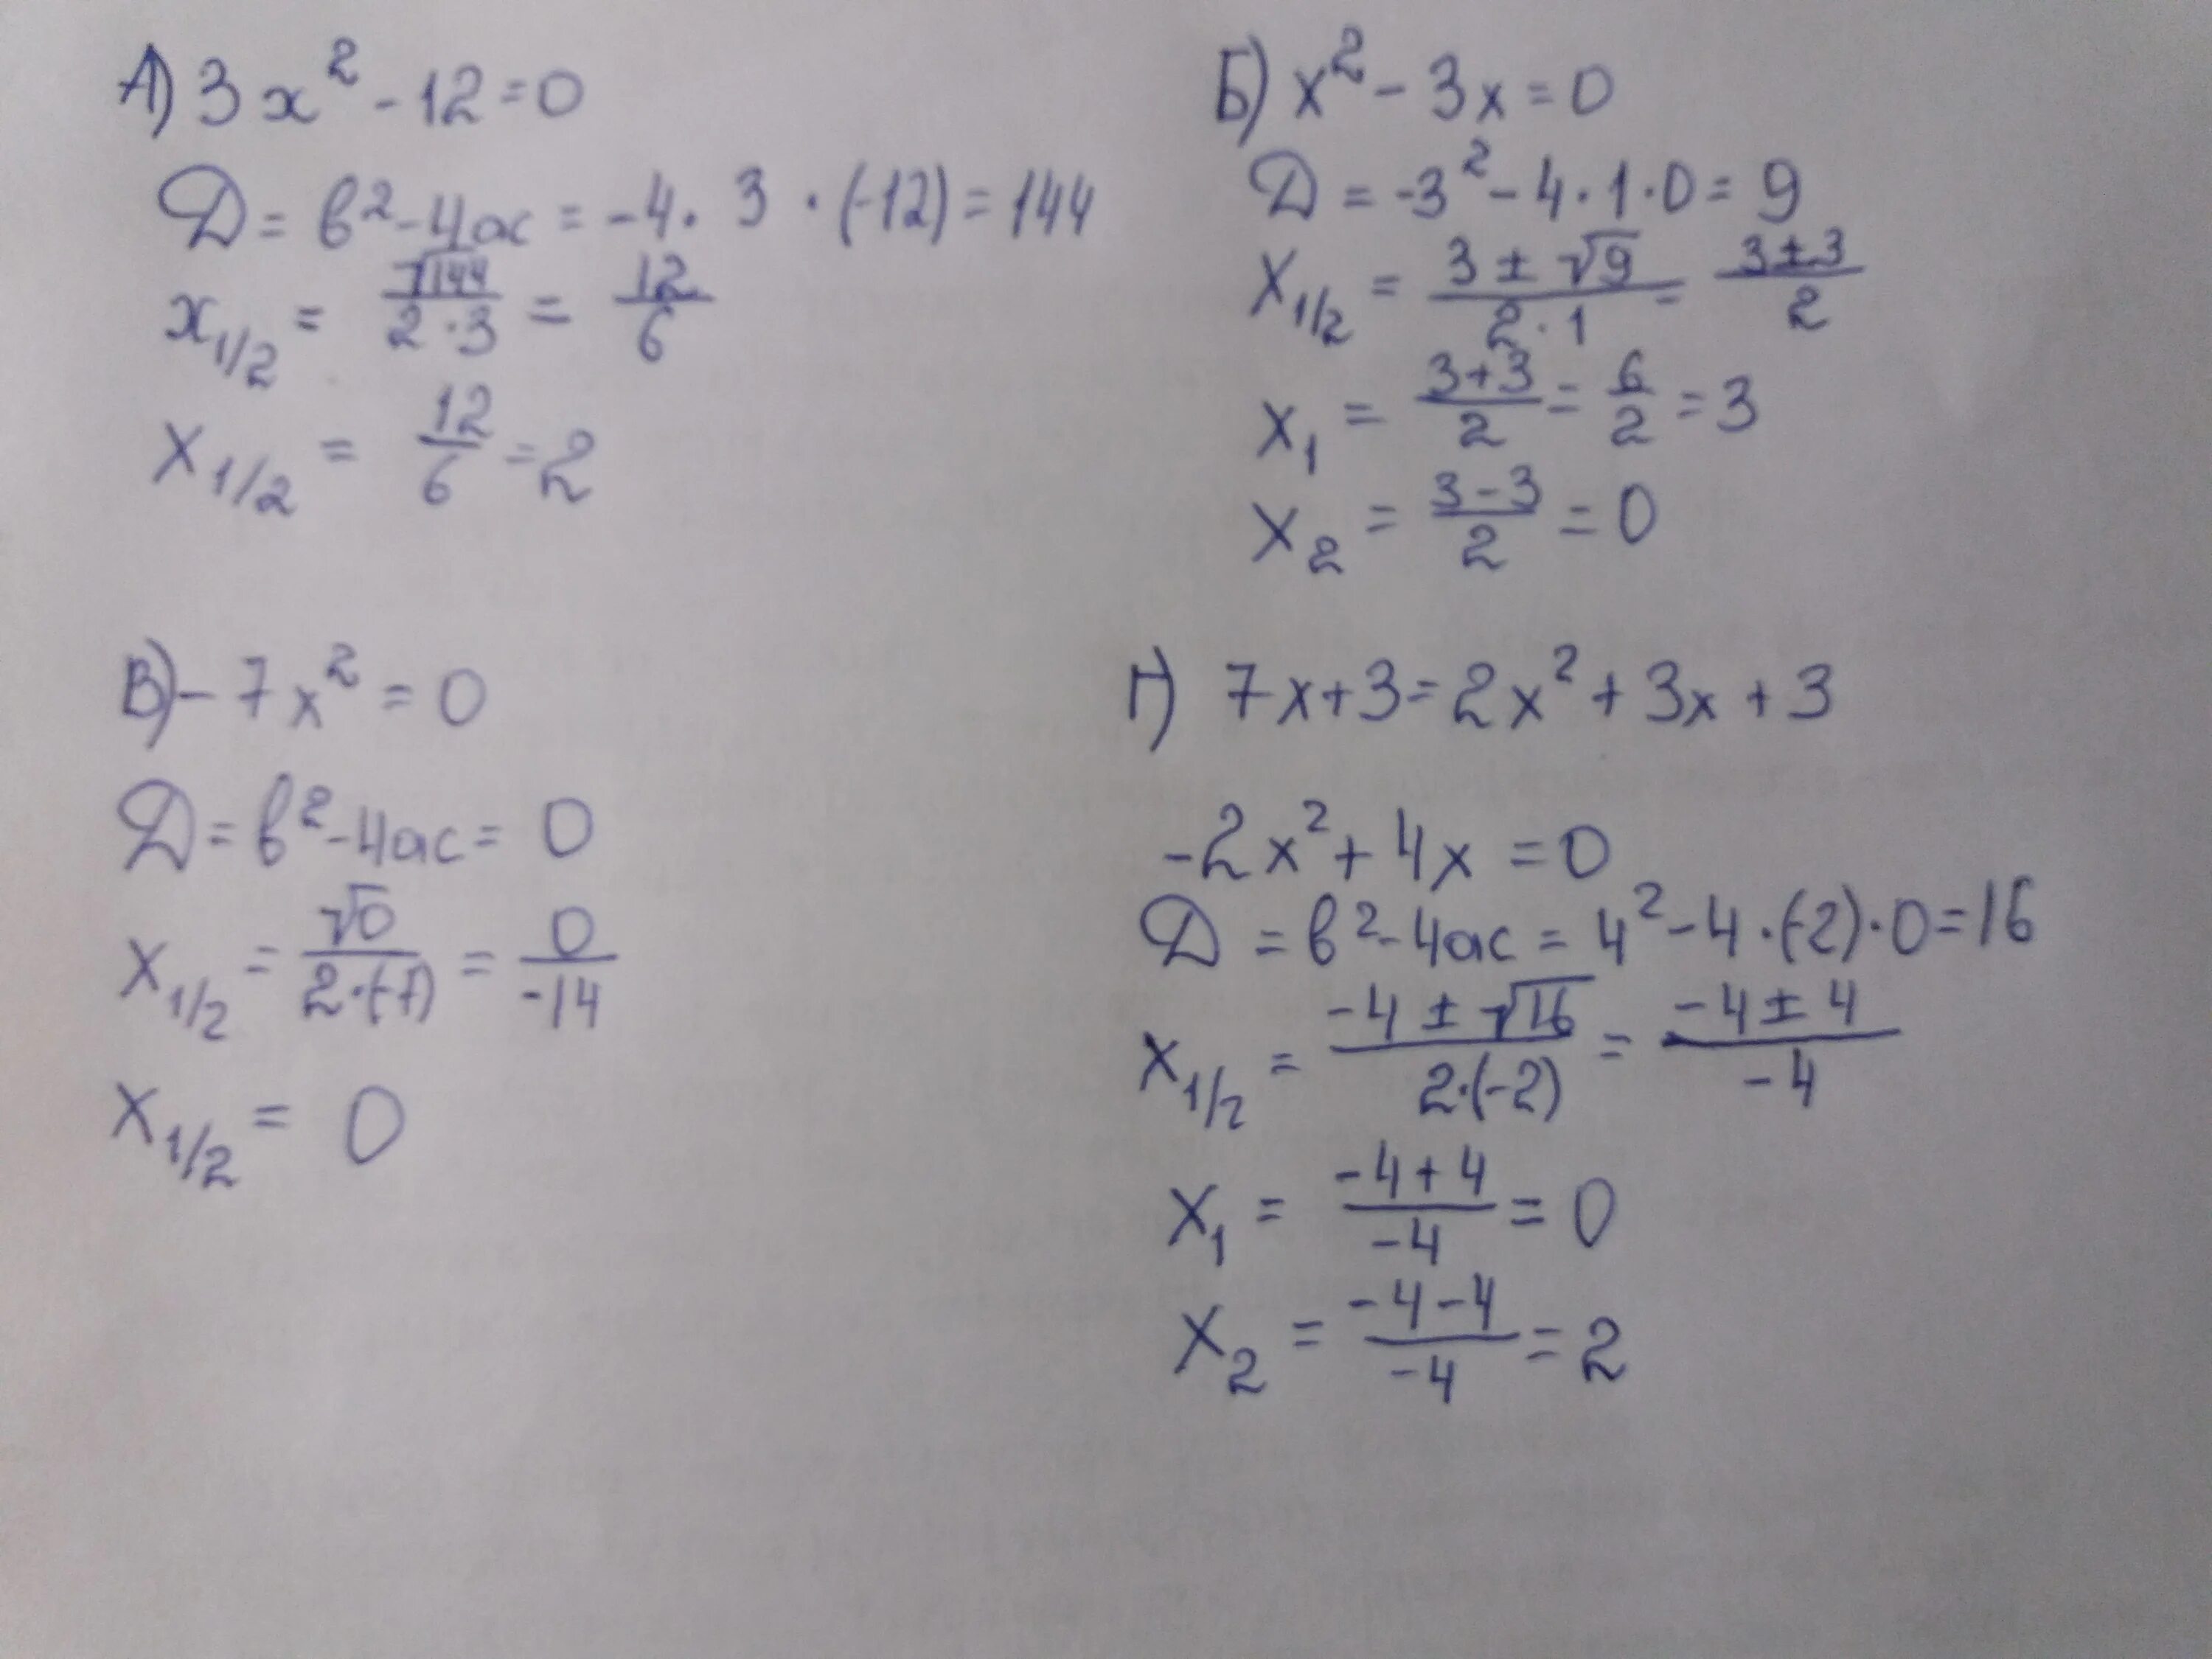 А) 3x² - 12 = 0
Д = в² - 4ac = -4 · 3 · (-12) = 144
x₁/₂ = √144 / 2·3 = 12/6
x₁/₂ = 12/6 = 2
Б) x² - 3x = 0
Д = -3² - 4·1·0 = 9
x₁/₂ = 3 ± √9 / 2·1 = 3±3 / 2
x₁ = 3+3 / 2 = 6/2 = 3
x₂ = 3-3 / 2 = 0
В) - 7x² = 0
Д = в² - 4ac = 0
x₁/₂ = √0 / 2·(-7) = 0 / -14
x₁/₂ = 0
Г) 7x + 3 = 2x² + 3x + 3
-2x² + 4x = 0
Д = в² - 4ac = 4² - 4·(-2)·0 = 16
x₁/₂ = -4 ± √16 / 2·(-2) = -4 ± 4 / -4
x₁ = -4+4 / -4 = 0
x₂ = -4-4 / -4 = 2